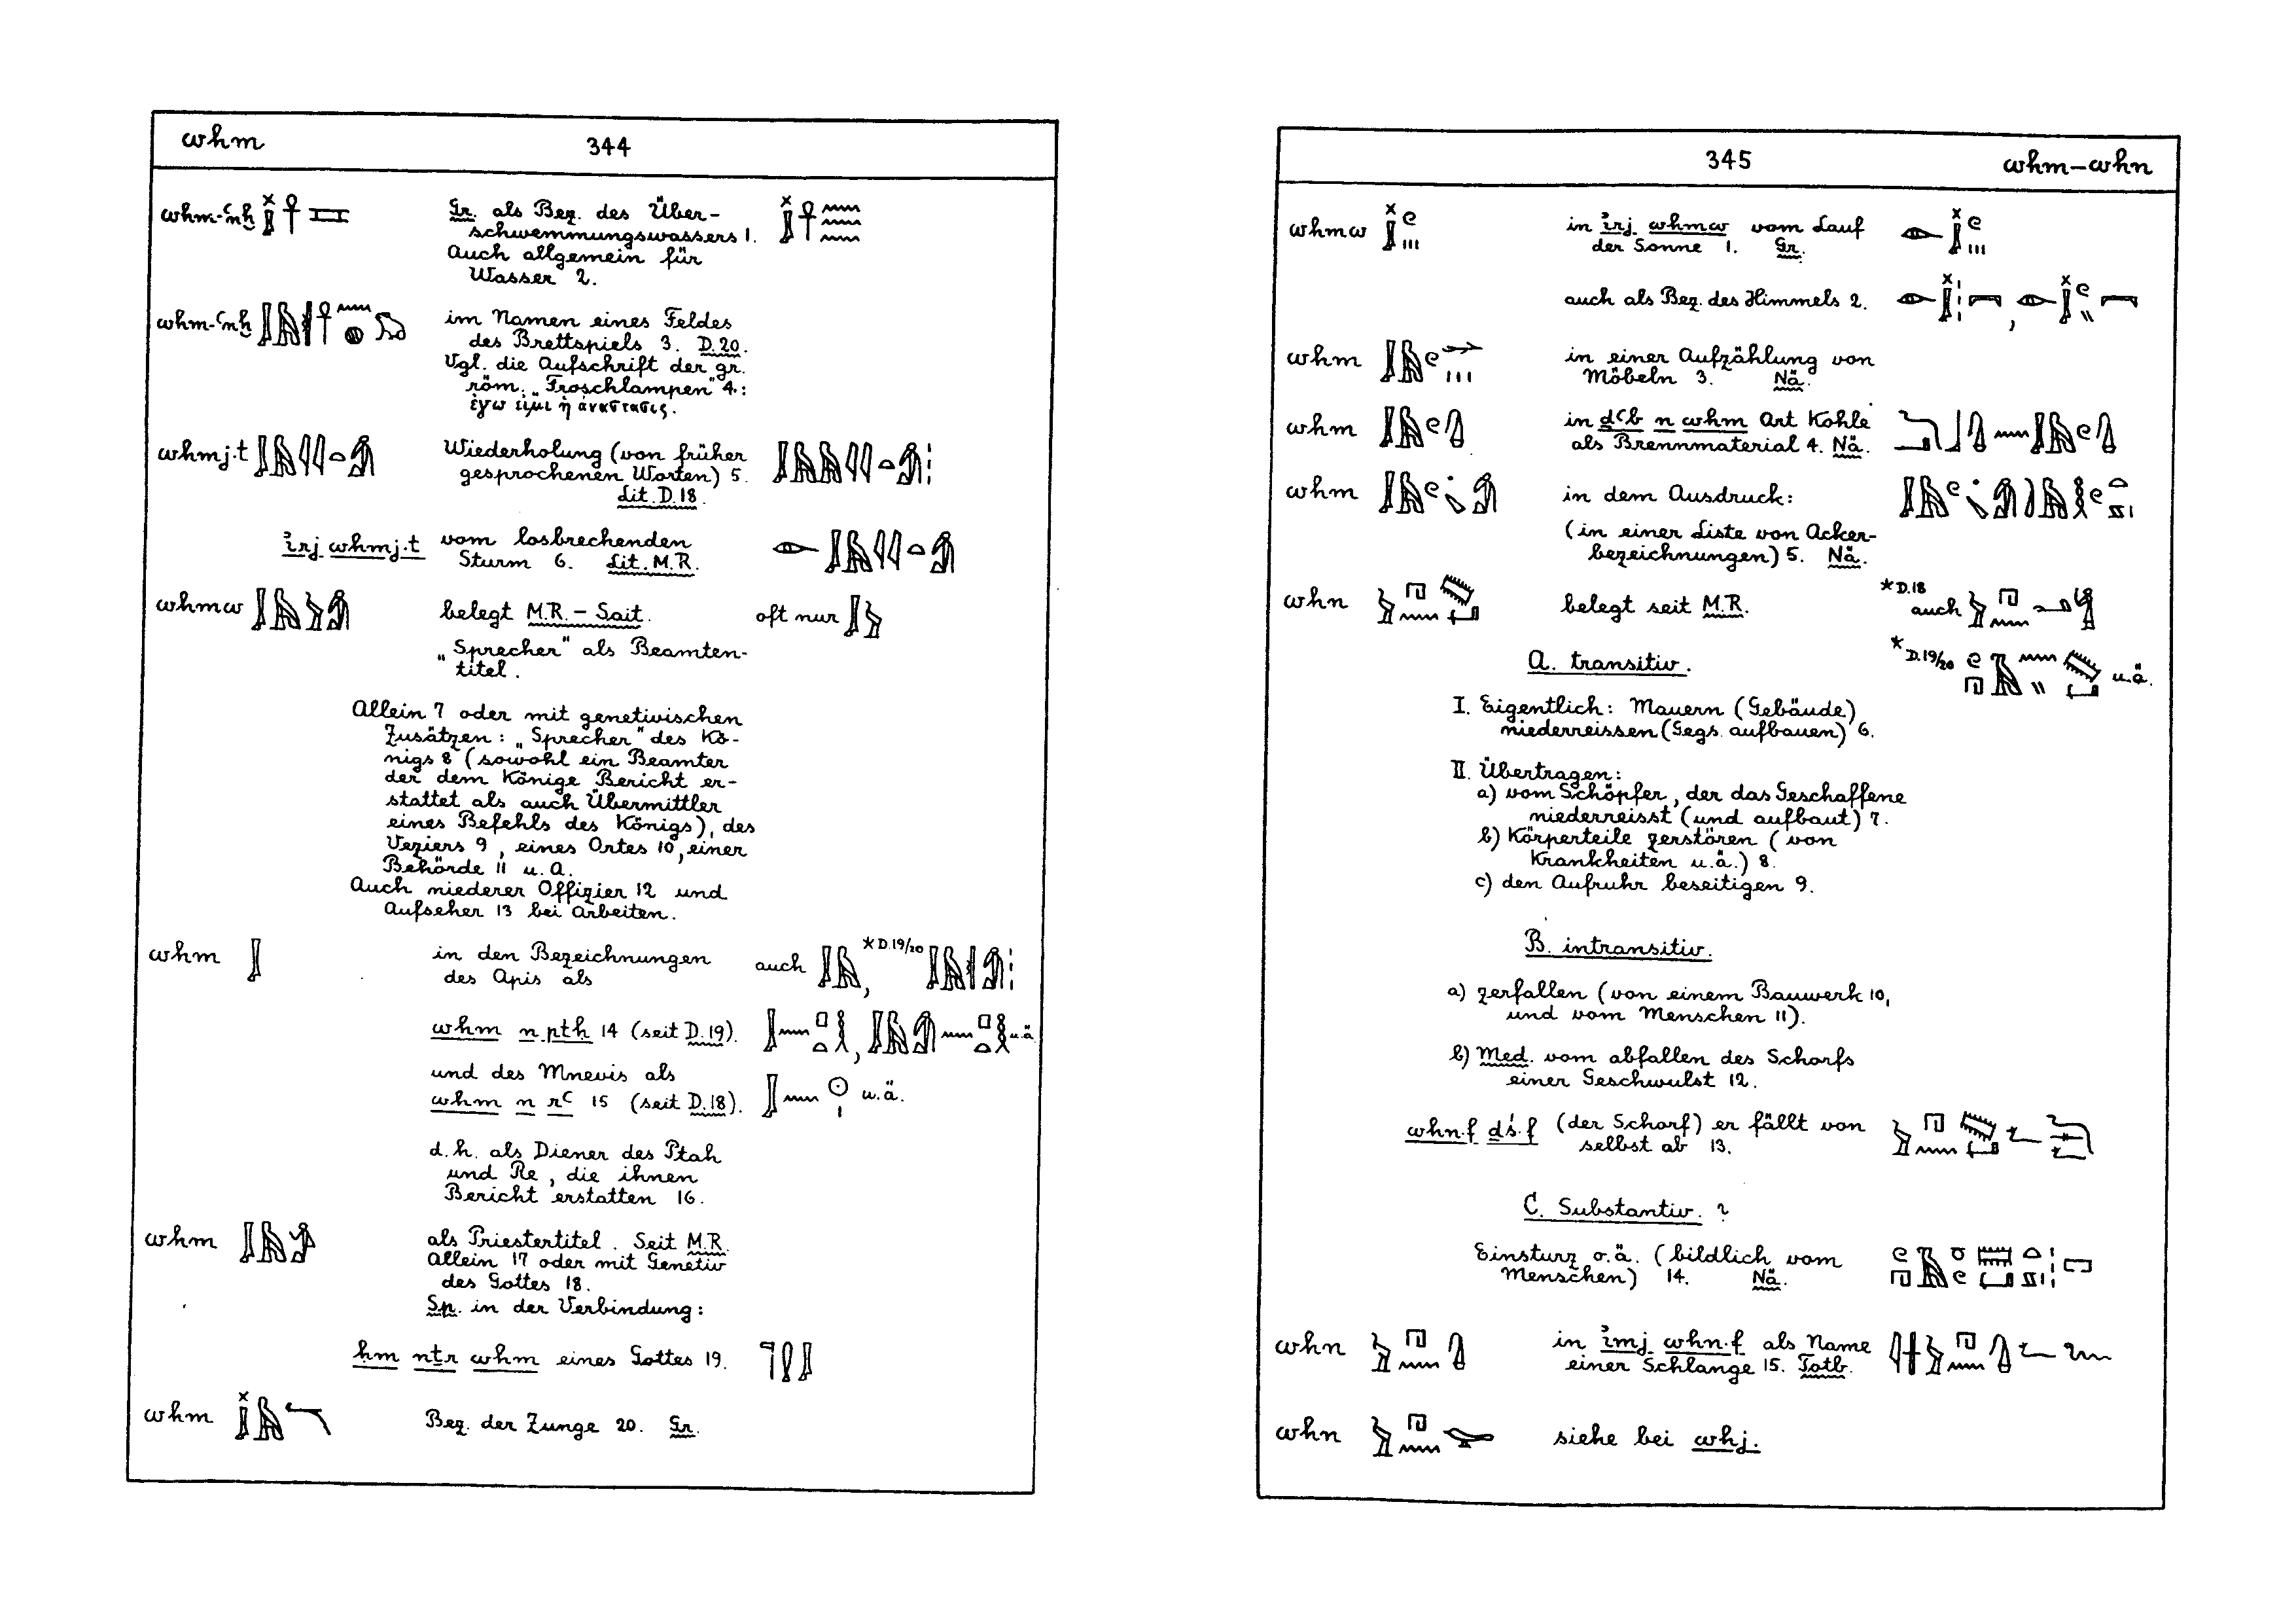 whm 344
whm-ꜥnḫ Gr. als Bez. des Über-
schwemmungswassers 1.
Auch allgemein für
Wasser 2.
whm-ꜥnḫ im Namen eines Feldes
des Brettspiels 3. D.20.
Vgl. die Aufschrift der gr.
röm. „Froschlampen" 4.:
ἐγω εἰμι ἡ ἀναστασις.
whmj.t Wiederholung (von früher
gesprochenen Worten) 5.
Lit. D.18.
ỉrj whmj.t vom losbrechenden
Sturm 6. Lit. M.R.
whmw belegt M.R. – Sait. oft nur
„Sprecher" als Beamten-
titel.
Allein 7 oder mit genetivischen
Zusätzen: „Sprecher" des Kö-
nigs 8 (sowohl ein Beamter
der dem Könige Bericht er-
stattet als auch Übermittler
eines Befehls des Königs), des
Veziers 9, eines Ortes 10, einer
Behörde 11 u. a.
Auch niederer Offizier 12 und
Aufseher 13 bei Arbeiten.
whm in den Bezeichnungen auch , *D.19/20
des Apis als
whm n ptḥ 14 (seit D.19). , u.ä.
und des Mnevis als
whm n rꜥ 15 (seit D.18). u.ä.
d.h. als Diener des Ptah
und Re, die ihnen
Bericht erstatten 16.
whm als Priestertitel. Seit M.R.
Allein 17 oder mit Genetiv
des Gottes 18.
Sp. in der Verbindung:
ḥm nṯr whm eines Gottes 19.
whm Bez. der Zunge 20. Gr.
345 whm–whn
whmw in ỉrj whmw vom Lauf
der Sonne 1. Gr.
auch als Bez. des Himmels 2. ,
whm in einer Aufzählung von
Möbeln 3. Nä.
whm in dꜥb n whm Art Kohle
als Brennmaterial 4. Nä.
whm in dem Ausdruck:
(in einer Liste von Acker-
bezeichnungen) 5. Nä.
whn belegt seit M.R. *D.18 auch
*D.19/20 u.ä.
A. transitiv.
I. Eigentlich: Mauern (Gebäude)
niederreissen (Gegs. aufbauen) 6.
II. Übertragen:
a) vom Schöpfer, der das Geschaffene
niederreisst (und aufbaut) 7.
b) Körperteile zerstören (von
Krankheiten u.ä.) 8.
c) den Aufruhr beseitigen 9.
B. intransitiv.
a) zerfallen (von einem Bauwerk 10,
und vom Menschen 11).
b) Med. vom abfallen des Schorfs
einer Geschwulst 12.
whn.f ḏś.f (der Schorf) er fällt von
selbst ab 13.
C. Substantiv. ?
Einsturz o.ä. (bildlich vom
Menschen) 14. Nä.
whn in ỉmj whn.f als Name
einer Schlange 15. Totb.
whn siehe bei whj.